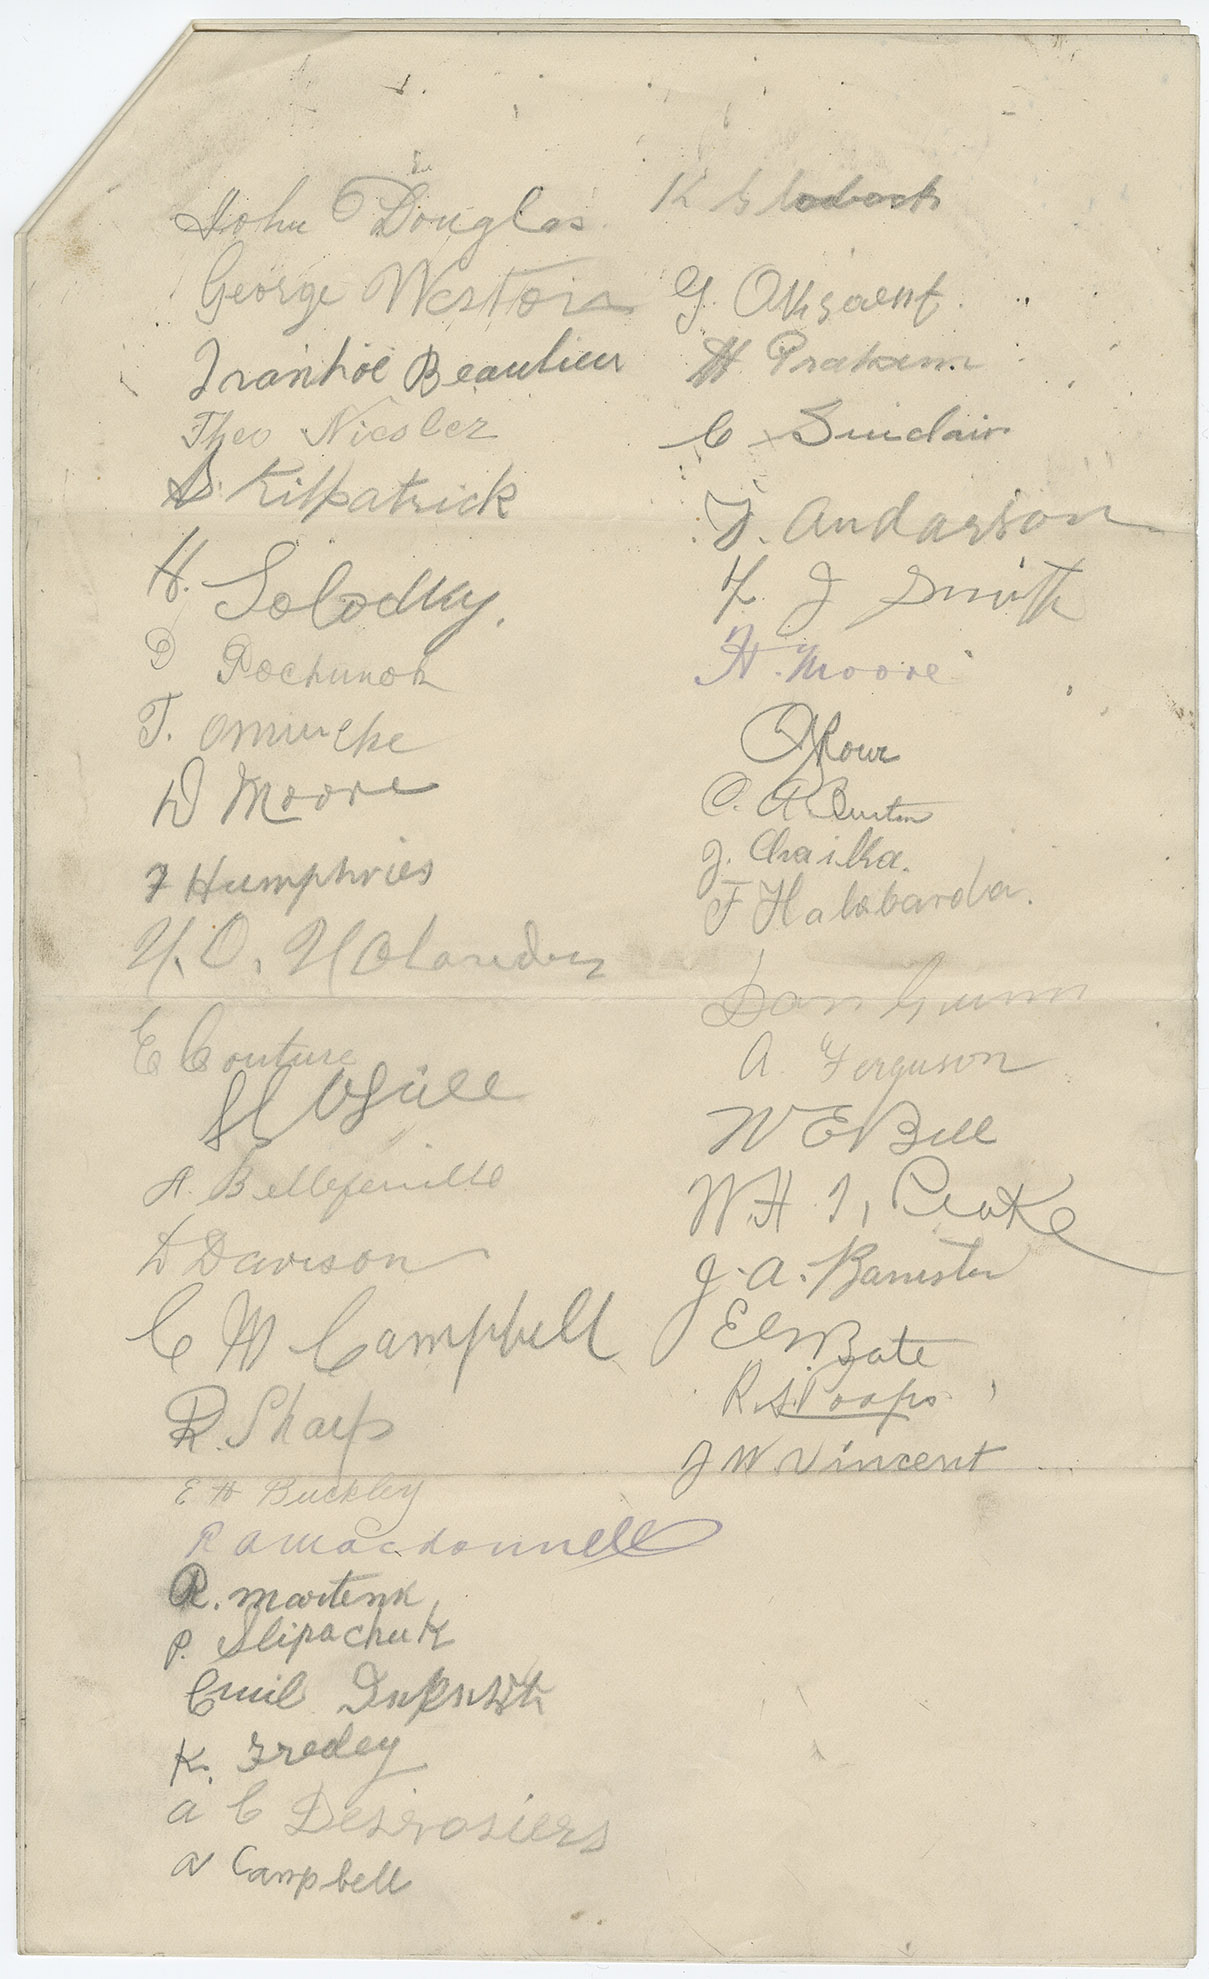 John Douglas
George Weston
Ivanhoe Beaulieu
Theo Niesler
D. Kilpatrick
H. Solodky.
P Pochunok
T.
D Moore
F Humphries
E Couture
A. Bellefeuille
D Davison
C M Campbell
R. Sharp
E H Buckley
R A Macdonnell
R. martenk
P. Slipachuk
Emil
K. Fredey
a C Desrosiers
A Campbell
K
G.
H
C Sinclair
T. Andarson
F J Smith
H. Moore
C. R Burton
J. Chaika.
F Halabarda.
Dan Gunn
A. Ferguson
W E Bell
W. H. J, Peake
J. A. Banister
E C W Bate
R. S.
J W Vincent